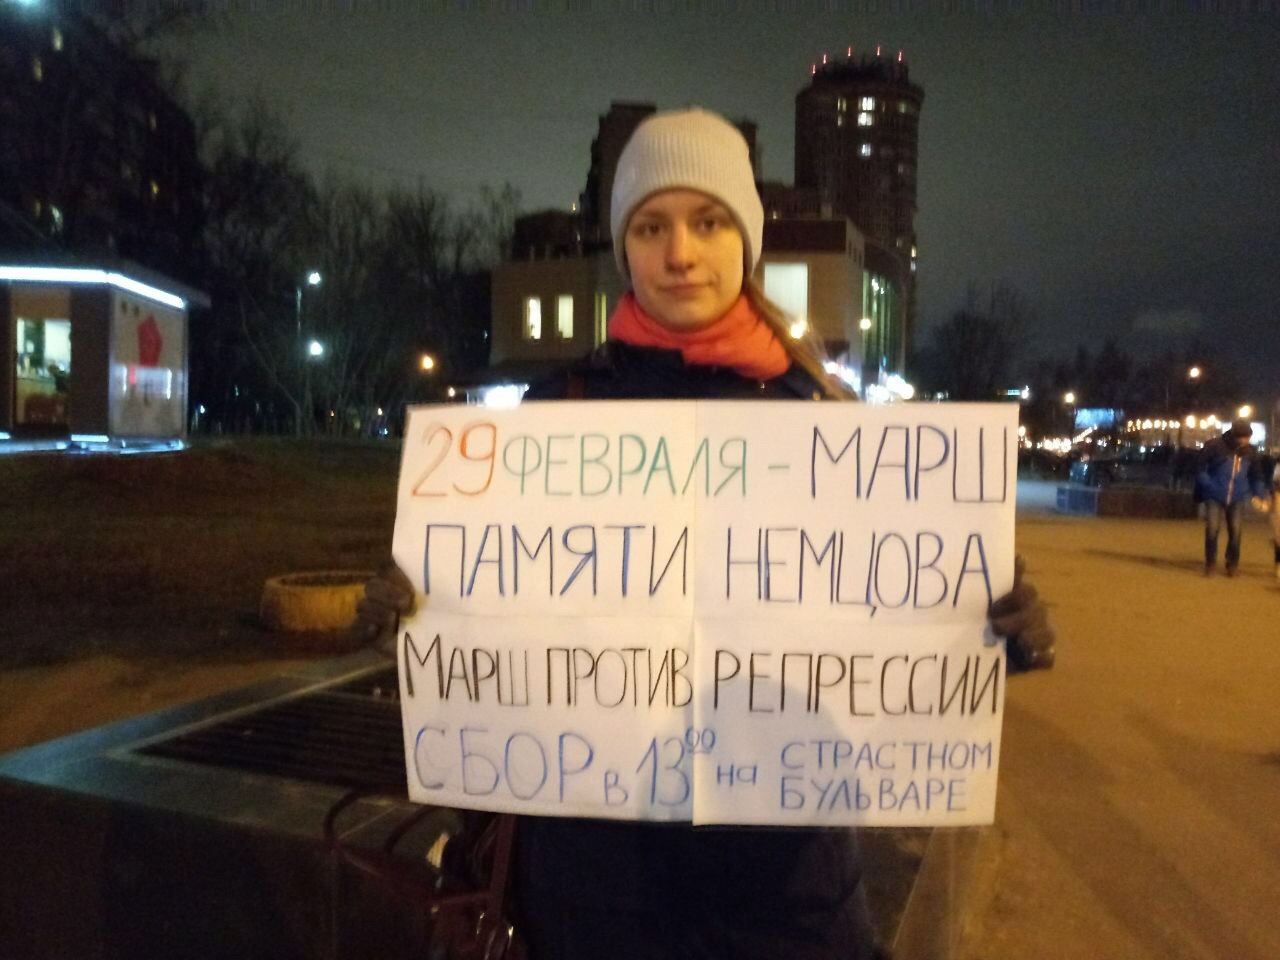 29 ФЕВРАЛЯ - МАРШ
ПАМЯТИ НЕМЦОВА
МАРШ ПРОТИВ РЕПРЕССИИ
СБОР в 13⁰⁰ на СТРАСТНОМ
БУЛЬВАРЕ